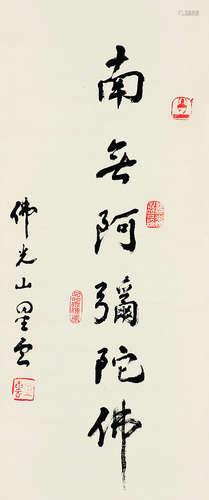 南無阿彌陀佛
佛光山星雲